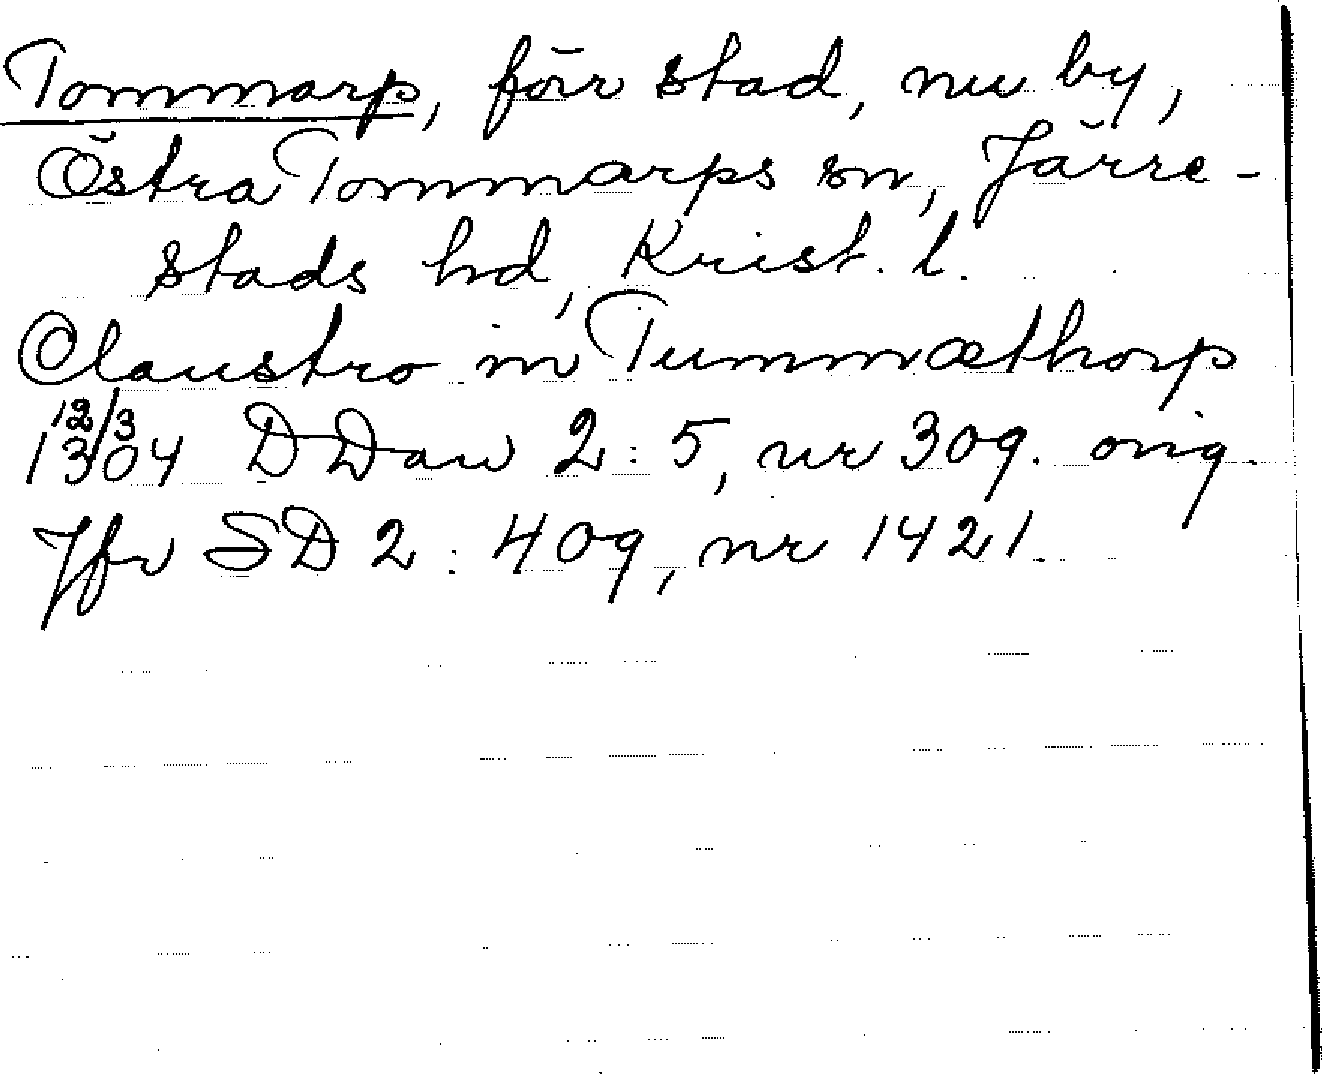 Tommarp, förr stad, nu by,
Östra Tommarps sn, Järre-
stads hd, Krist. l.
Claustro in Tummæthorp
12/3
1304 DDan 2:5, nr 309. orig.
Jfr SD 2:409, nr 1421.